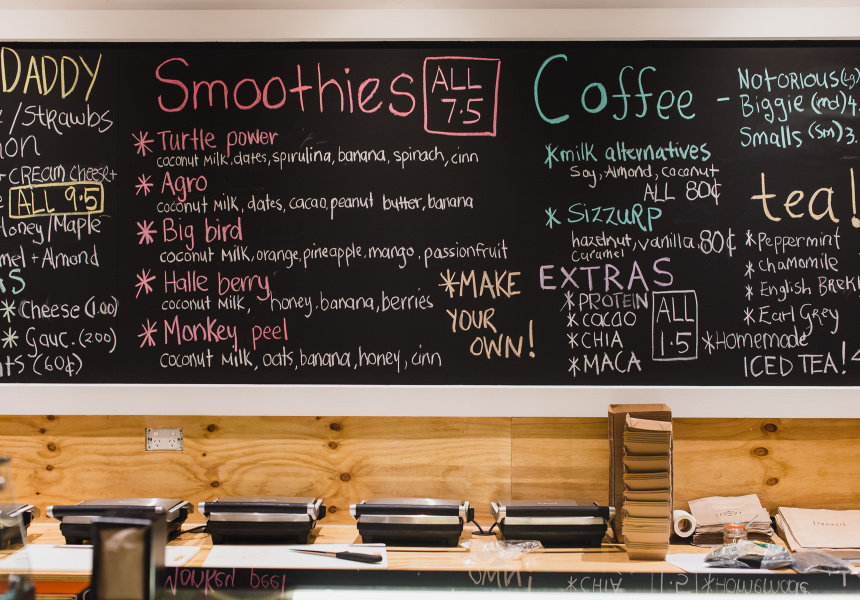 DADDY
/Strawbs
+ CREAM cheese+
ALL 9.5
Honey/Maple
+ Almond
* Cheese (1.00)
* Gauc. (200)
(60¢)
Smoothies
ALL
7.5
* Turtle power
coconut milk, dates, spirulina, banana, spinach, cinn
* Agro
coconut milk, dates, cacao, peanut butter, banana
* Big bird
coconut milk, orange, pineapple, mango, passionfruit
* Halle berry
coconut milk, honey, banana, berries
* Monkey peel
coconut milk, oats, banana, honey, cinn
* MAKE
YOUR
OWN!
Coffee -
NOTORIOUS (Lg)
Biggie (md) 4.
Smalls (sm) 3.
* milk alternatives
Soy, Almond, coconut
ALL 80¢
* SIZZURP
hazelnut, vanilla, 80¢
caramel
EXTRAS
* PROTEIN
* CACAO
* CHIA
* MACA
ALL
1.5
tea!
* Peppermint
* chamomile
* English Brek
* Earl Grey
* Homemade
ICED TEA!